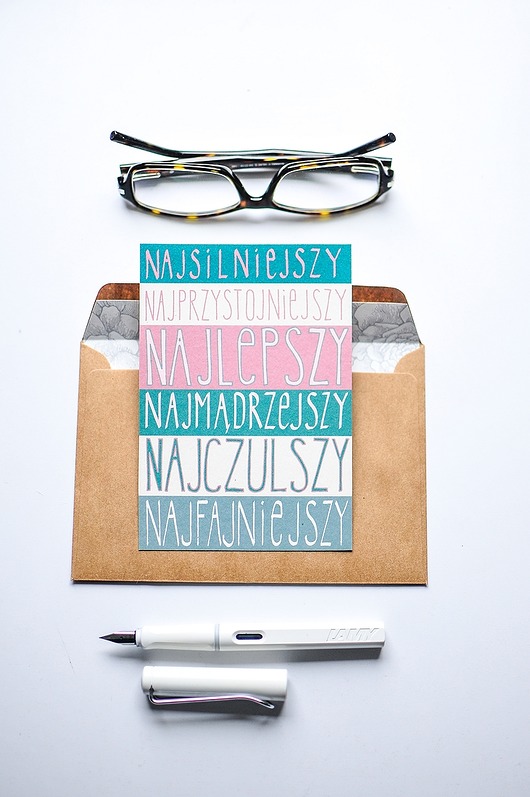 NAJSiLNiejSZY
NAJPRZYSTOJNiejSZY
NAJLePSZY
NAJMĄDRZejSZY
NAJCZULSZY
NAJFAJNiejSZY
LAMY